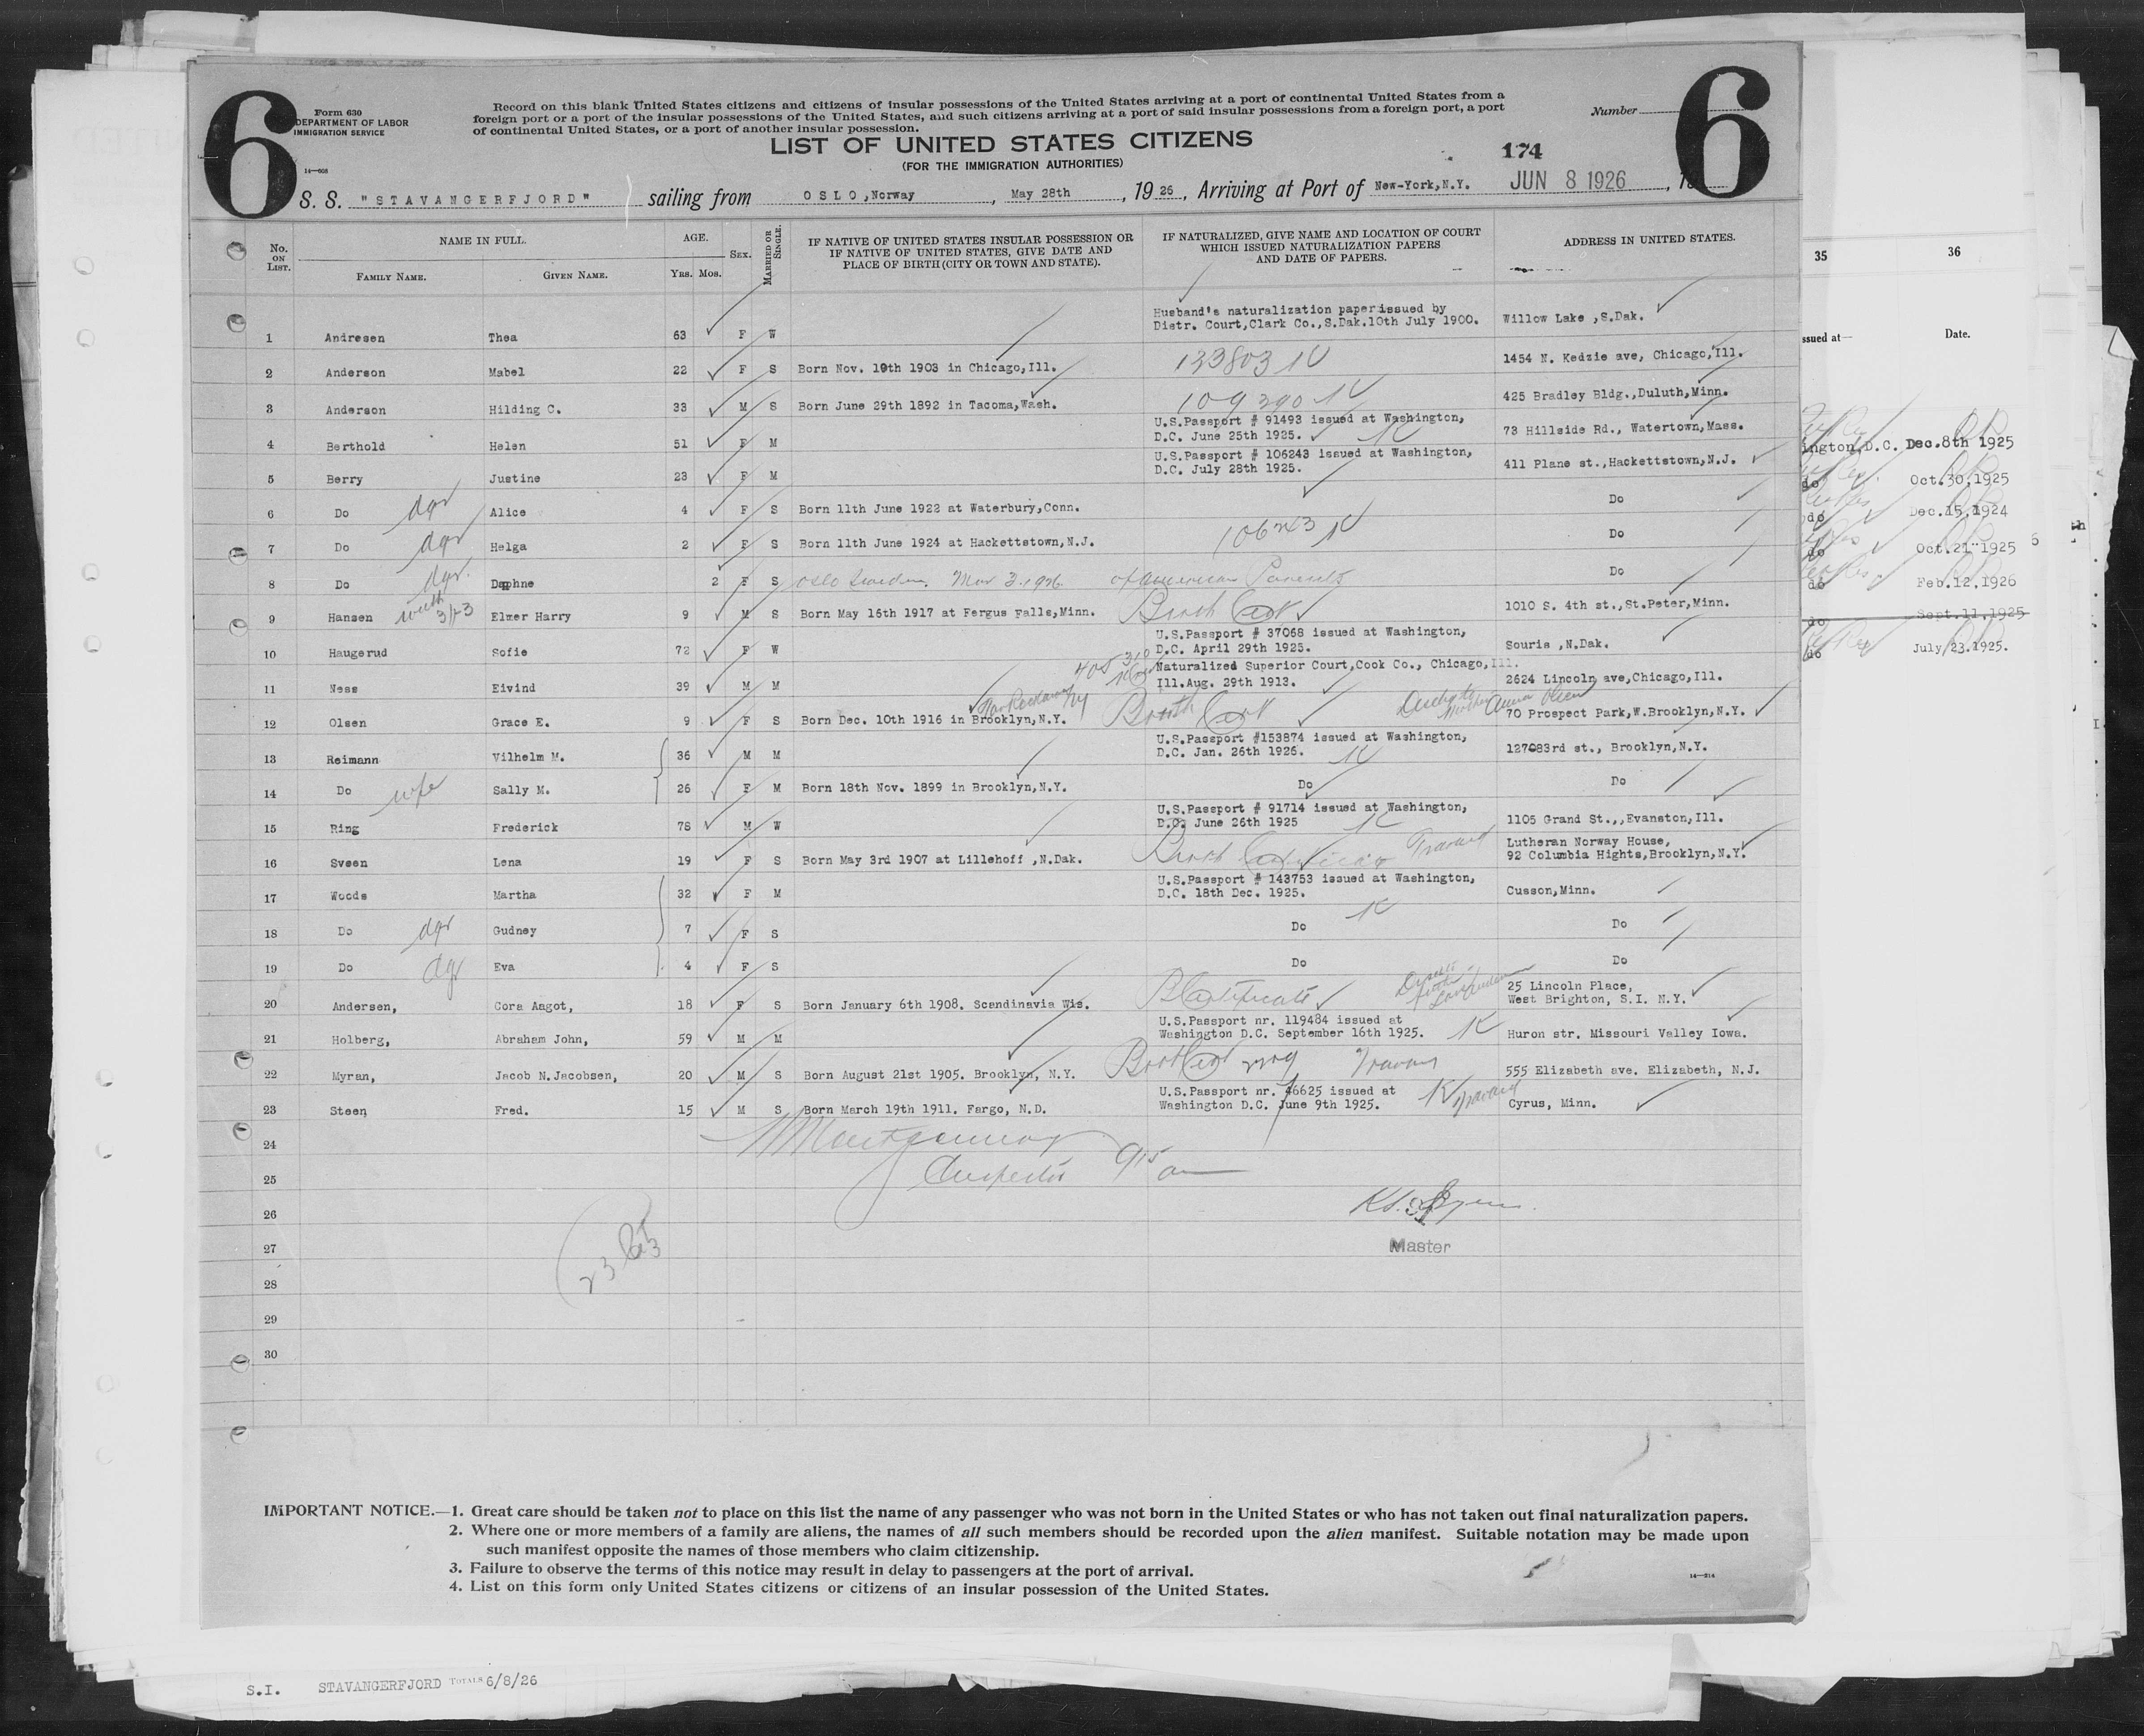 6
6
Form 630
DEPARTMENT OF LABOR
IMMIGRATION SERVICE
14—608
Record on this blank United States citizens and citizens of insular possessions of the United States arriving at a port of continental United States from a
foreign port or a port of the insular possessions of the United States, and such citizens arriving at a port of said insular possessions from a foreign port, a port
of continental United States, or a port of another insular possession.
Number
LIST OF UNITED STATES CITIZENS
(FOR THE IMMIGRATION AUTHORITIES)
174
S. S. "STAVANGERFJORD" sailing from OSLO,Norway, May 28th, 19 26, Arriving at Port of New-York,N.Y. JUN 8 1926, 19
No. ON LIST. NAME IN FULL. FAMILY NAME. GIVEN NAME. AGE. YRS. MOS. SEX. MARRIED OR SINGLE. IF NATIVE OF UNITED STATES INSULAR POSSESSION OR IF NATIVE OF UNITED STATES, GIVE DATE AND PLACE OF BIRTH (CITY OR TOWN AND STATE). IF NATURALIZED, GIVE NAME AND LOCATION OF COURT WHICH ISSUED NATURALIZATION PAPERS AND DATE OF PAPERS. ADDRESS IN UNITED STATES.
1 Andresen Thea 63 F W Husband's naturalization paper issued by Distr. Court,Clark Co.,S.Dak.10th July 1900. Willow Lake ,S.Dak.
2 Anderson Mabel 22 F S Born Nov. 19th 1903 in Chicago,Ill. 133803 1454 N. Kedzie ave, Chicago,Ill.
3 Anderson Hilding C. 33 M S Born June 29th 1892 in Tacoma,Wash. 109290 425 Bradley Bldg.,Duluth,Minn.
4 Berthold Helen 51 F M U.S.Passport # 91493 issued at Washington, D.C. June 25th 1925. 73 Hillside Rd., Watertown,Mass.
5 Berry Justine 23 F M U.S.Passport # 106243 issued at Washington, D.C. July 28th 1925. 411 Plane st.,Hackettstown,N.J.
6 Do dgr Alice 4 F S Born 11th June 1922 at Waterbury,Conn. Do
7 Do dgr Helga 2 F S Born 11th June 1924 at Hackettstown,N.J. 106243 Do
8 Do dgr. Daphne 2 F S Oslo Sweden. Mar 3. 1926 of American Parents Do
9 Hansen with 3/23 Elmer Harry 9 M S Born May 16th 1917 at Fergus Falls,Minn. Birth Cert 1010 S. 4th st.,St.Peter,Minn.
10 Haugerud Sofie 72 F W U.S.Passport # 37068 issued at Washington, D.C. April 29th 1925. Souris ,N.Dak.
11 Ness Eivind 39 M M 405310 Naturalized Superior Court,Cook Co., Chicago,Ill. Ill.Aug. 29th 1913. 2624 Lincoln ave,Chicago,Ill.
12 Olsen Grace E. 9 F S Born Dec. 10th 1916 in Brooklyn,N.Y. Birth Cert mother Anna Olsen 70 Prospect Park,W.Brooklyn,N.Y.
13 Reimann Vilhelm M. 36 M M U.S.Passport #153874 issued at Washington, D.C. Jan. 26th 1926. 127083rd st., Brooklyn,N.Y.
14 Do wife Sally M. 26 F M Born 18th Nov. 1899 in Brooklyn,N.Y. Do Do
15 Ring Frederick 78 M W U.S.Passport # 91714 issued at Washington, D.C. June 26th 1925 1105 Grand St.,,Evanston,Ill.
16 Sveen Lena 19 F S Born May 3rd 1907 at Lillehoff ,N.Dak. Birth Certificate Lutheran Norway House, 92 Columbia Hights,Brooklyn,N.Y.
17 Woods Martha 32 F M U.S.Passport # 143753 issued at Washington, D.C. 18th Dec. 1925. Cusson,Minn.
18 Do dgr Gudney 7 F S Do Do
19 Do dgr Eva 4 F S Do Do
20 Andersen, Cora Aagot, 18 F S Born January 6th 1908. Scandinavia Wis. B Certificate 25 Lincoln Place, West Brighton, S.I. N.Y.
21 Holberg, Abraham John, 59 M M U.S.Passport nr. 119484 issued at Washington D.C. September 16th 1925. Huron str. Missouri Valley Iowa.
22 Myran, Jacob N.Jacobsen, 20 M S Born August 21st 1905. Brooklyn, N.Y. Birth Cert 555 Elizabeth ave. Elizabeth, N.J.
23 Steen Fred. 15 M S Born March 19th 1911. Fargo, N.D. U.S.Passport nr. 46625 issued at Washington D.C. June 9th 1925. Cyrus, Minn.
24 Montgomery
25 Inspector 9 15 am
26
27 Master
28
29
30
IMPORTANT NOTICE.—1. Great care should be taken not to place on this list the name of any passenger who was not born in the United States or who has not taken out final naturalization papers.
2. Where one or more members of a family are aliens, the names of all such members should be recorded upon the alien manifest. Suitable notation may be made upon
such manifest opposite the names of those members who claim citizenship.
3. Failure to observe the terms of this notice may result in delay to passengers at the port of arrival.
4. List on this form only United States citizens or citizens of an insular possession of the United States.
14—214
35 36
ssued at— Date.
ington,D.C. Dec.8th 1925
do Oct.30,1925
do Dec.15,1924
do Oct.21"1925 6
do Feb.12,1926
do Sept.11,1925
do July 23.1925.
S.I. STAVANGERFJORD TOTALS 6/8/26